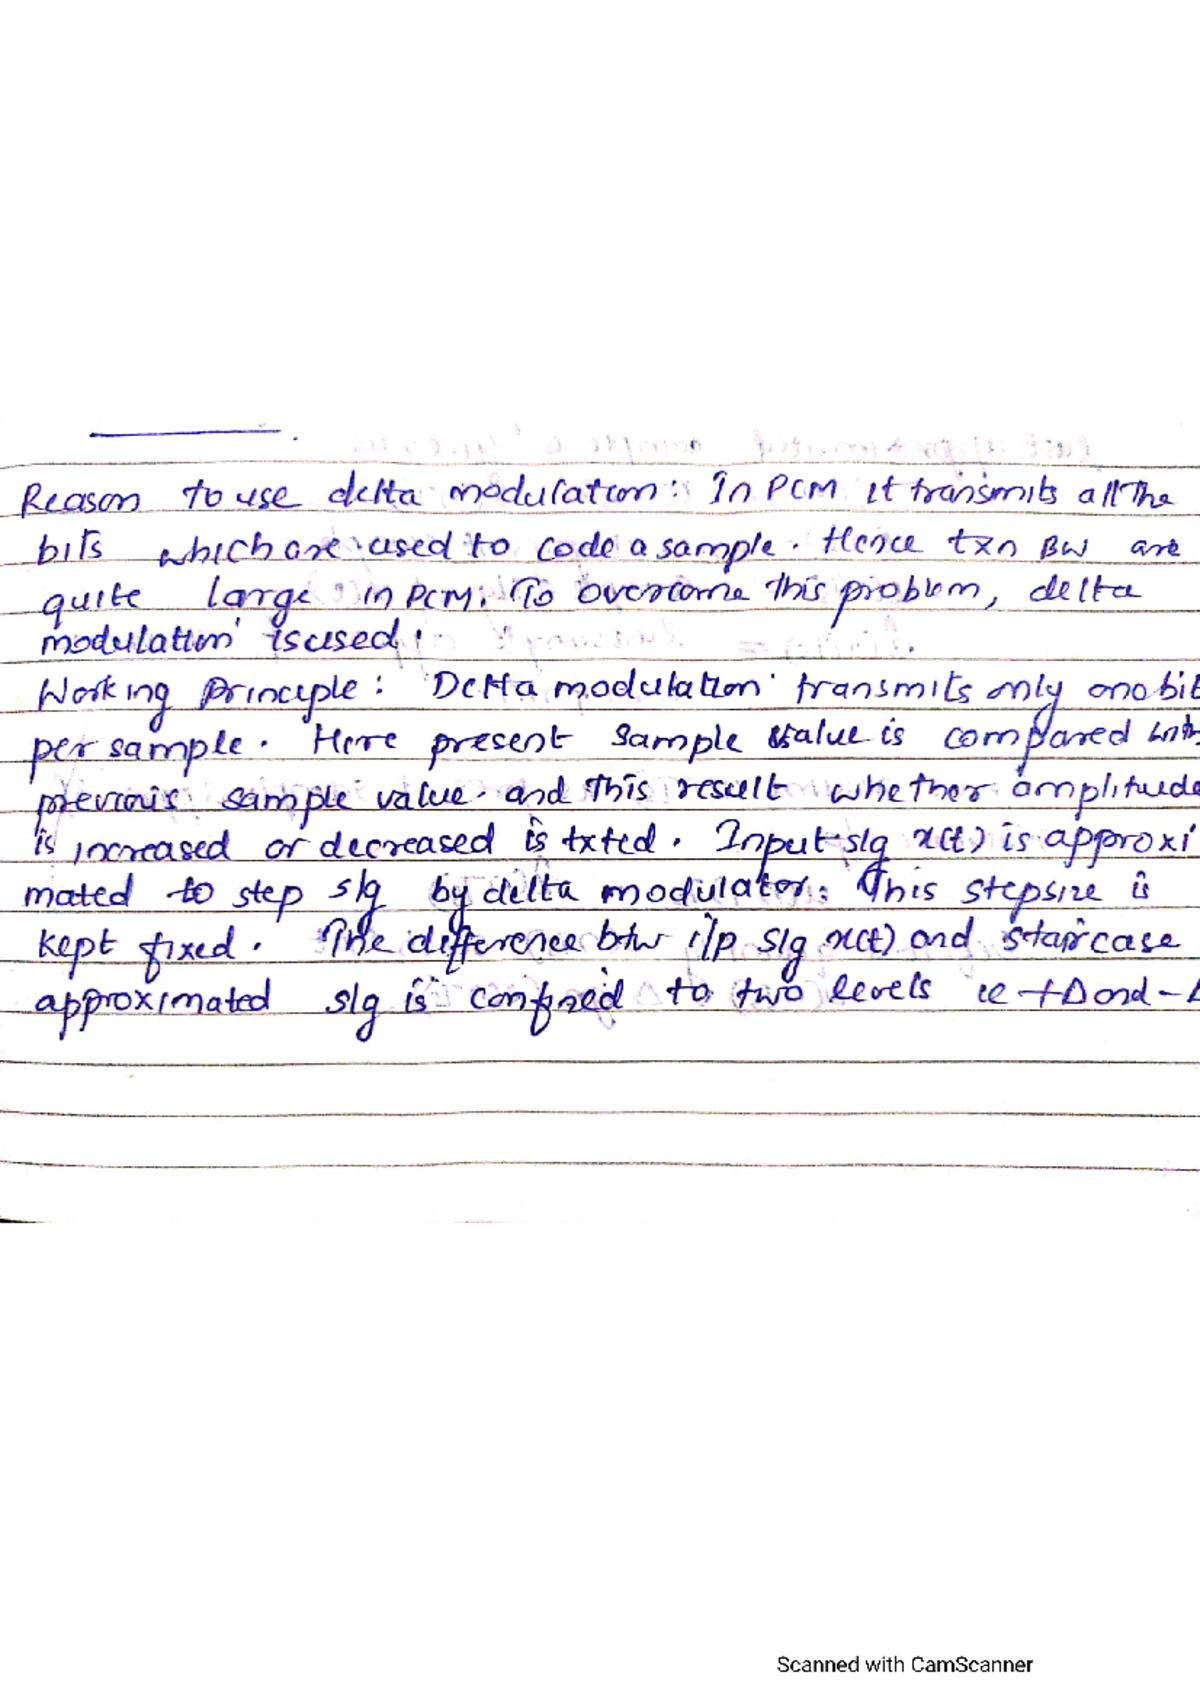 Reason to use delta modulation: In PCM it transmits all the
bits which are used to code a sample. Hence txn BW are
quite large in PCM. To overcome this problem, delta
modulation is used.
Working principle: Delta modulation transmits only one bit
per sample. Here present sample value is compared with
previous sample value and this result whether amplitude
is increased or decreased is txted. Input slg x(t) is approxi
mated to step slg by delta modulator. This stepsize is
kept fixed. The difference btw i/p slg x(t) and staircase
approximated slg is confined to two levels ie +Δ and -Δ
Scanned with CamScanner